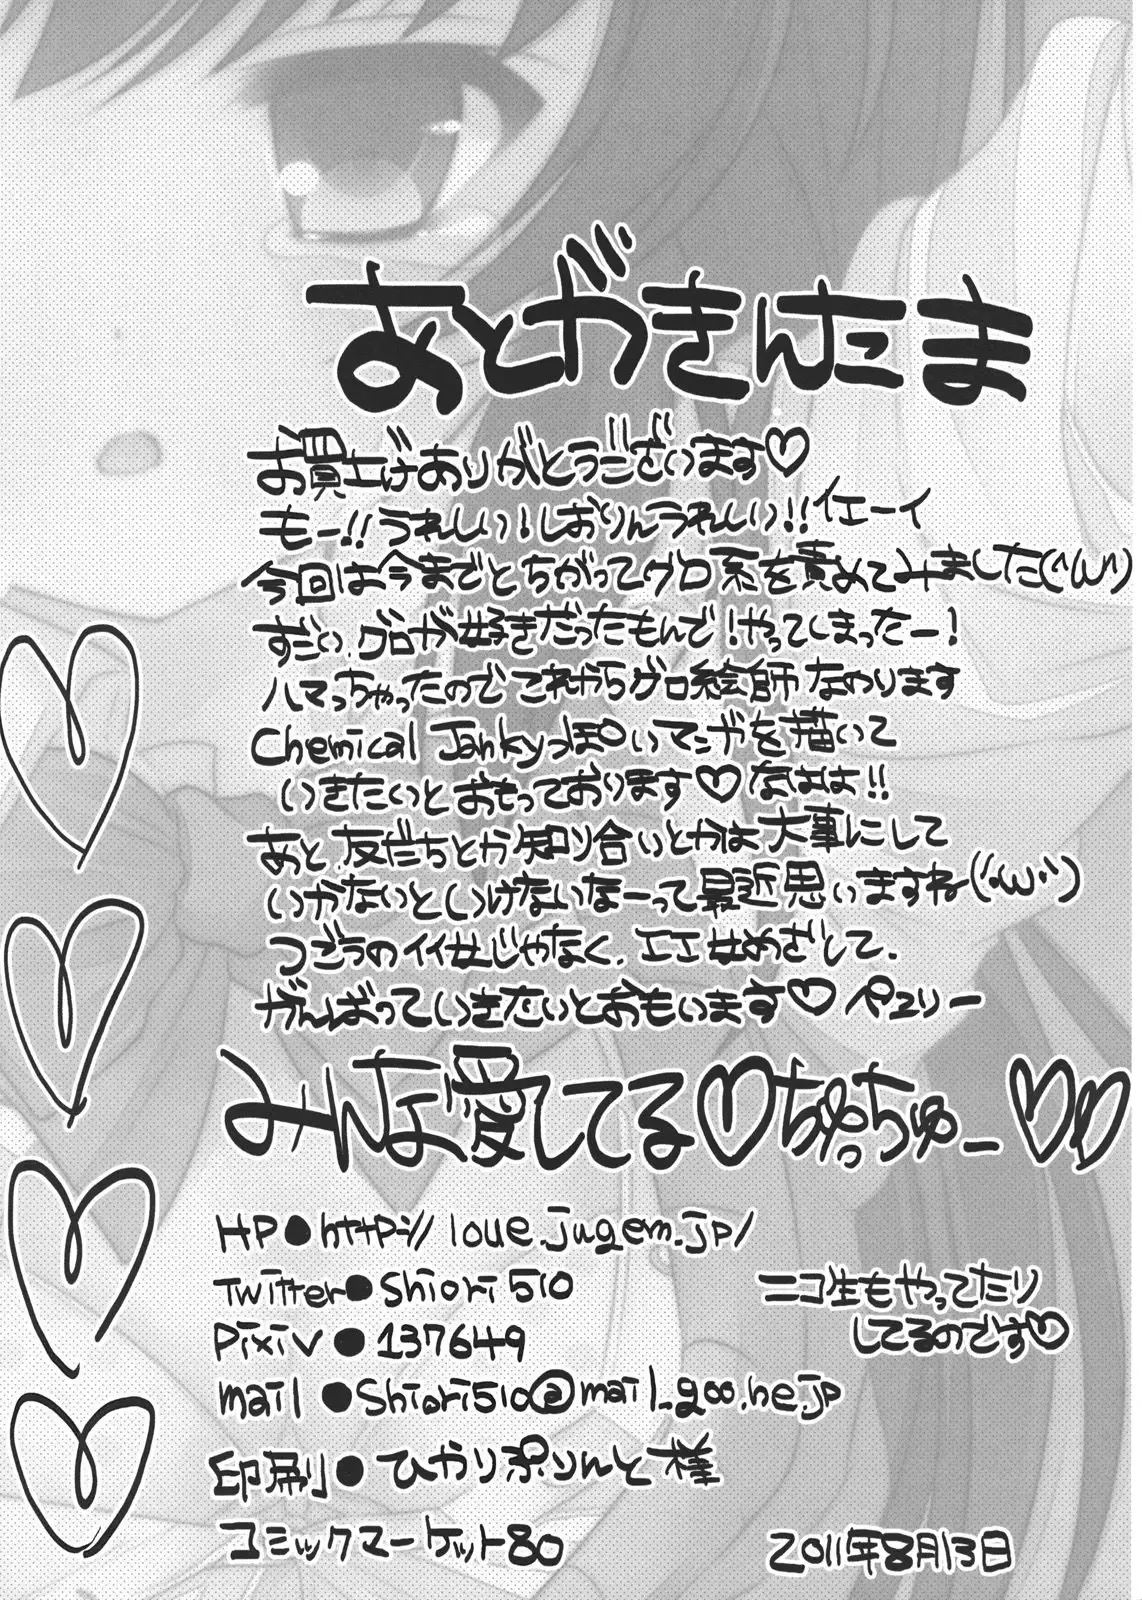 あとがきんたま
お買上げありがとうございます♡
もー!!うれしい!しおりんうれしい!!イエーイ
今回は今までとちがってグロ系を責めてみました(´・ω・`)
グロが好きだったもんで!やってしまったー!
ハマっちゃったのでこれからグロ絵師なのります
Chemical Jankyっぽいマンガを描いて
いきたいとおもっております♡なはは!!
あと、友だちとか知り合いとかは大事にして
いかないといけないなーって最近思いますね(´・ω・`)
つごうのイイ女じゃなく、エエ女めざして、
がんばっていきたいとおもいます♡ペュリー
みんな愛してる♡ちゅっちゅー♡♡
HP●http://loue.jugem.jp/
Twitter●Shiori510
Pixiv●137649
mail●Shiori510@mail.goo.ne.jp
ニコ生もやってたり
してるのです♡
印刷●ひかりぷりんと様
コミックマーケット80
2011年8月13日